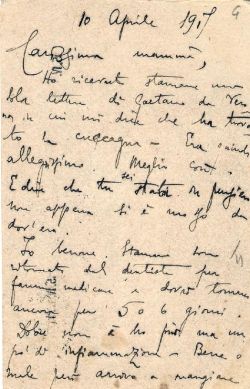 10 Aprile 1917
Carissima mamma,
Ho ricevuto stamane una
lettera di Gaetano da
in cui mi dice che ha trova
to la cuccagna - Era
allegrissimo. Meglio così -
E dice che tu sei stata in pensiero
non appena si è mosso da
dov'era.
Io benone. Stamane sono
ritornato dal dentista per
farmi medicare e dovrò tornare
ancora per 5 o 6 giorni.
Dolore non è ho più ma un
po' di infiammazione - Bene o
male però arrivo a mangiare